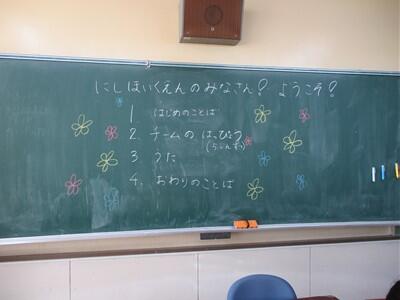 にしほいくえんのみなさん！ようこそ！
1 はじめのことば
2. チームの はっぴょう
3 うた
4. おわりのことば